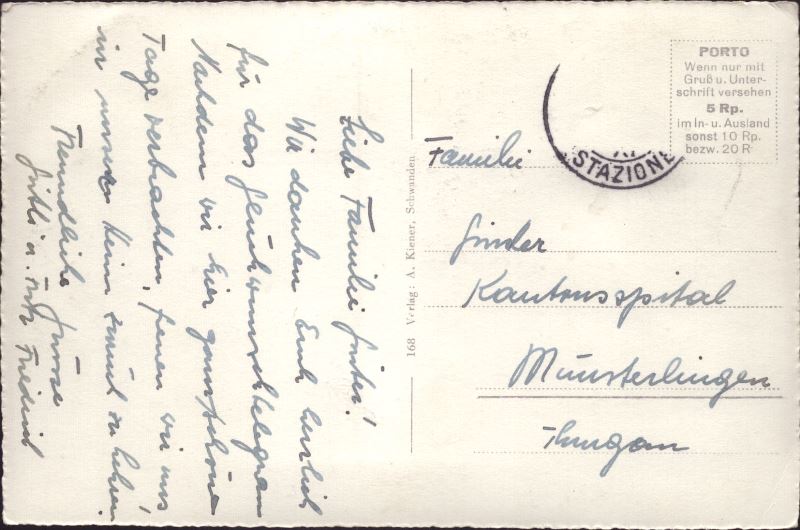 Liebe Familie Ginder!
Wir danken Euch herzlich
für das Glückwunschtelegramm
Nachdem wir hier ganz schöne
Tage verbrachten, freuen wir uns
in unser Heim zurück zu kehren!
Freundliche Grüsse
u. Fritz
168 Verlag: A. Kiener, Schwanden
PORTO
Wenn nur mit
Gruß u. Unter-
schrift versehen
5 Rp.
im In- u. Ausland
sonst 10 Rp.
bezw. 20 R
STAZIONE
Familie
Ginder
Kantonsspital
Münsterlingen
Thurgau